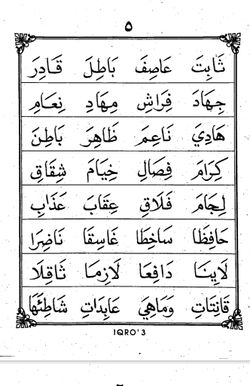 ٥
ثَابِتَ عَاصِفَ بَاطِلَ قَادِرَ
جِهَادَ فِرَاشِ مِهَادِ نِعَامِ
هَادِيَ نَاعِمَ ظَاهِرَ بَاطِنَ
كِرَامَ فِصَالِ خِيَامَ شِقَاقِ
لِجَامِ فَلَاقِ عِقَابَ عَذَابِ
حَافِظَا سَاخِطَا غَاسِقَا نَاضِرَا
لَابِثَا دَافِعَا لَازِمَا ثَاقِلَا
قَانِتَاتِ وَمَاهِيَ عَابِدَاتِ شَاطِئُهَا
IQRO'3